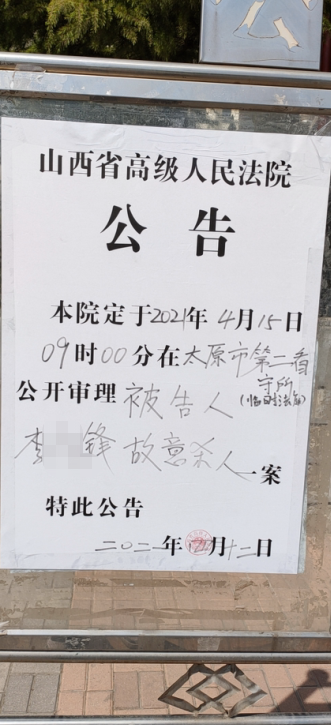 山西省高级人民法院
公告
本院定于2021年4月15日
09时00分在太原市第二看
守所
公开审理被告人(临时法庭)
李锋故意杀人一案
特此公告
二〇二一年月十二日